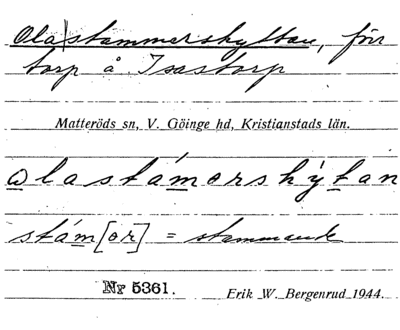 Ola|stammershyttan, förr
torp å Isastorp
Matteröds sn, V. Göinge hd, Kristianstads län.
ωlastámershýtan
stám[er] = stammande
Nr 5361.
Erik W. Bergenrud 1944.